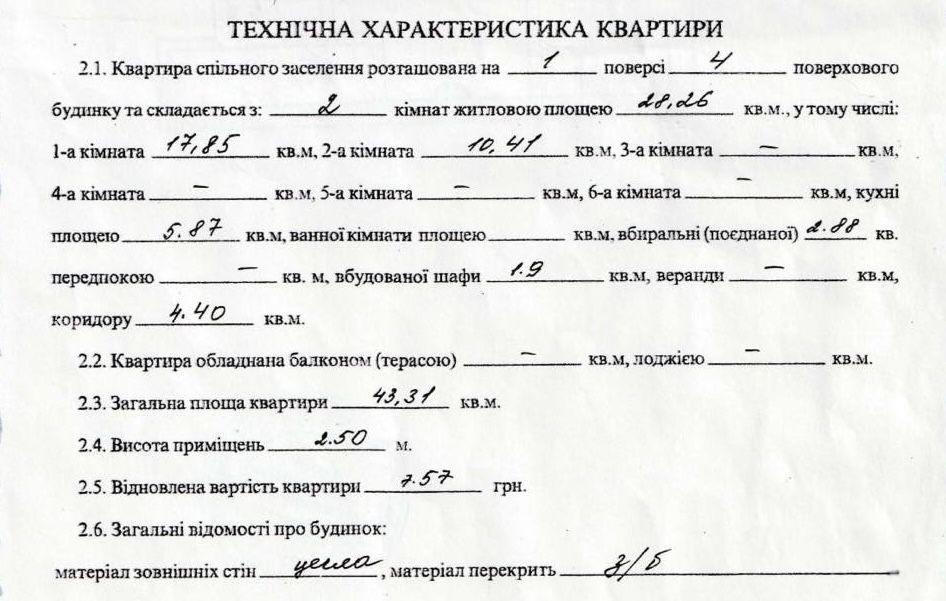 ТЕХНІЧНА ХАРАКТЕРИСТИКА КВАРТИРИ
2.1. Квартира спільного заселення розташована на 1 поверсі 4 поверхового
будинку та складається з: 2 кімнат житловою площею 28,26 кв.м., у тому числі:
1-а кімната 17,85 кв.м, 2-а кімната 10,41 кв.м, 3-а кімната – кв.м,
4-а кімната – кв.м, 5-а кімната – кв.м, 6-а кімната – кв.м, кухні
площею 5.87 кв.м, ванної кімнати площею кв.м, вбиральні (поєднаної) 2.88 кв.
передпокою – кв. м, вбудованої шафи 1.9 кв.м, веранди – кв.м,
коридору 4.40 кв.м.
2.2. Квартира обладнана балконом (терасою) – кв.м, лоджією – кв.м.
2.3. Загальна площа квартири 43,31 кв.м.
2.4. Висота приміщень 2.50 м.
2.5. Відновлена вартість квартири 7.57 грн.
2.6. Загальні відомості про будинок:
матеріал зовнішніх стін цегла, матеріал перекрить з/б